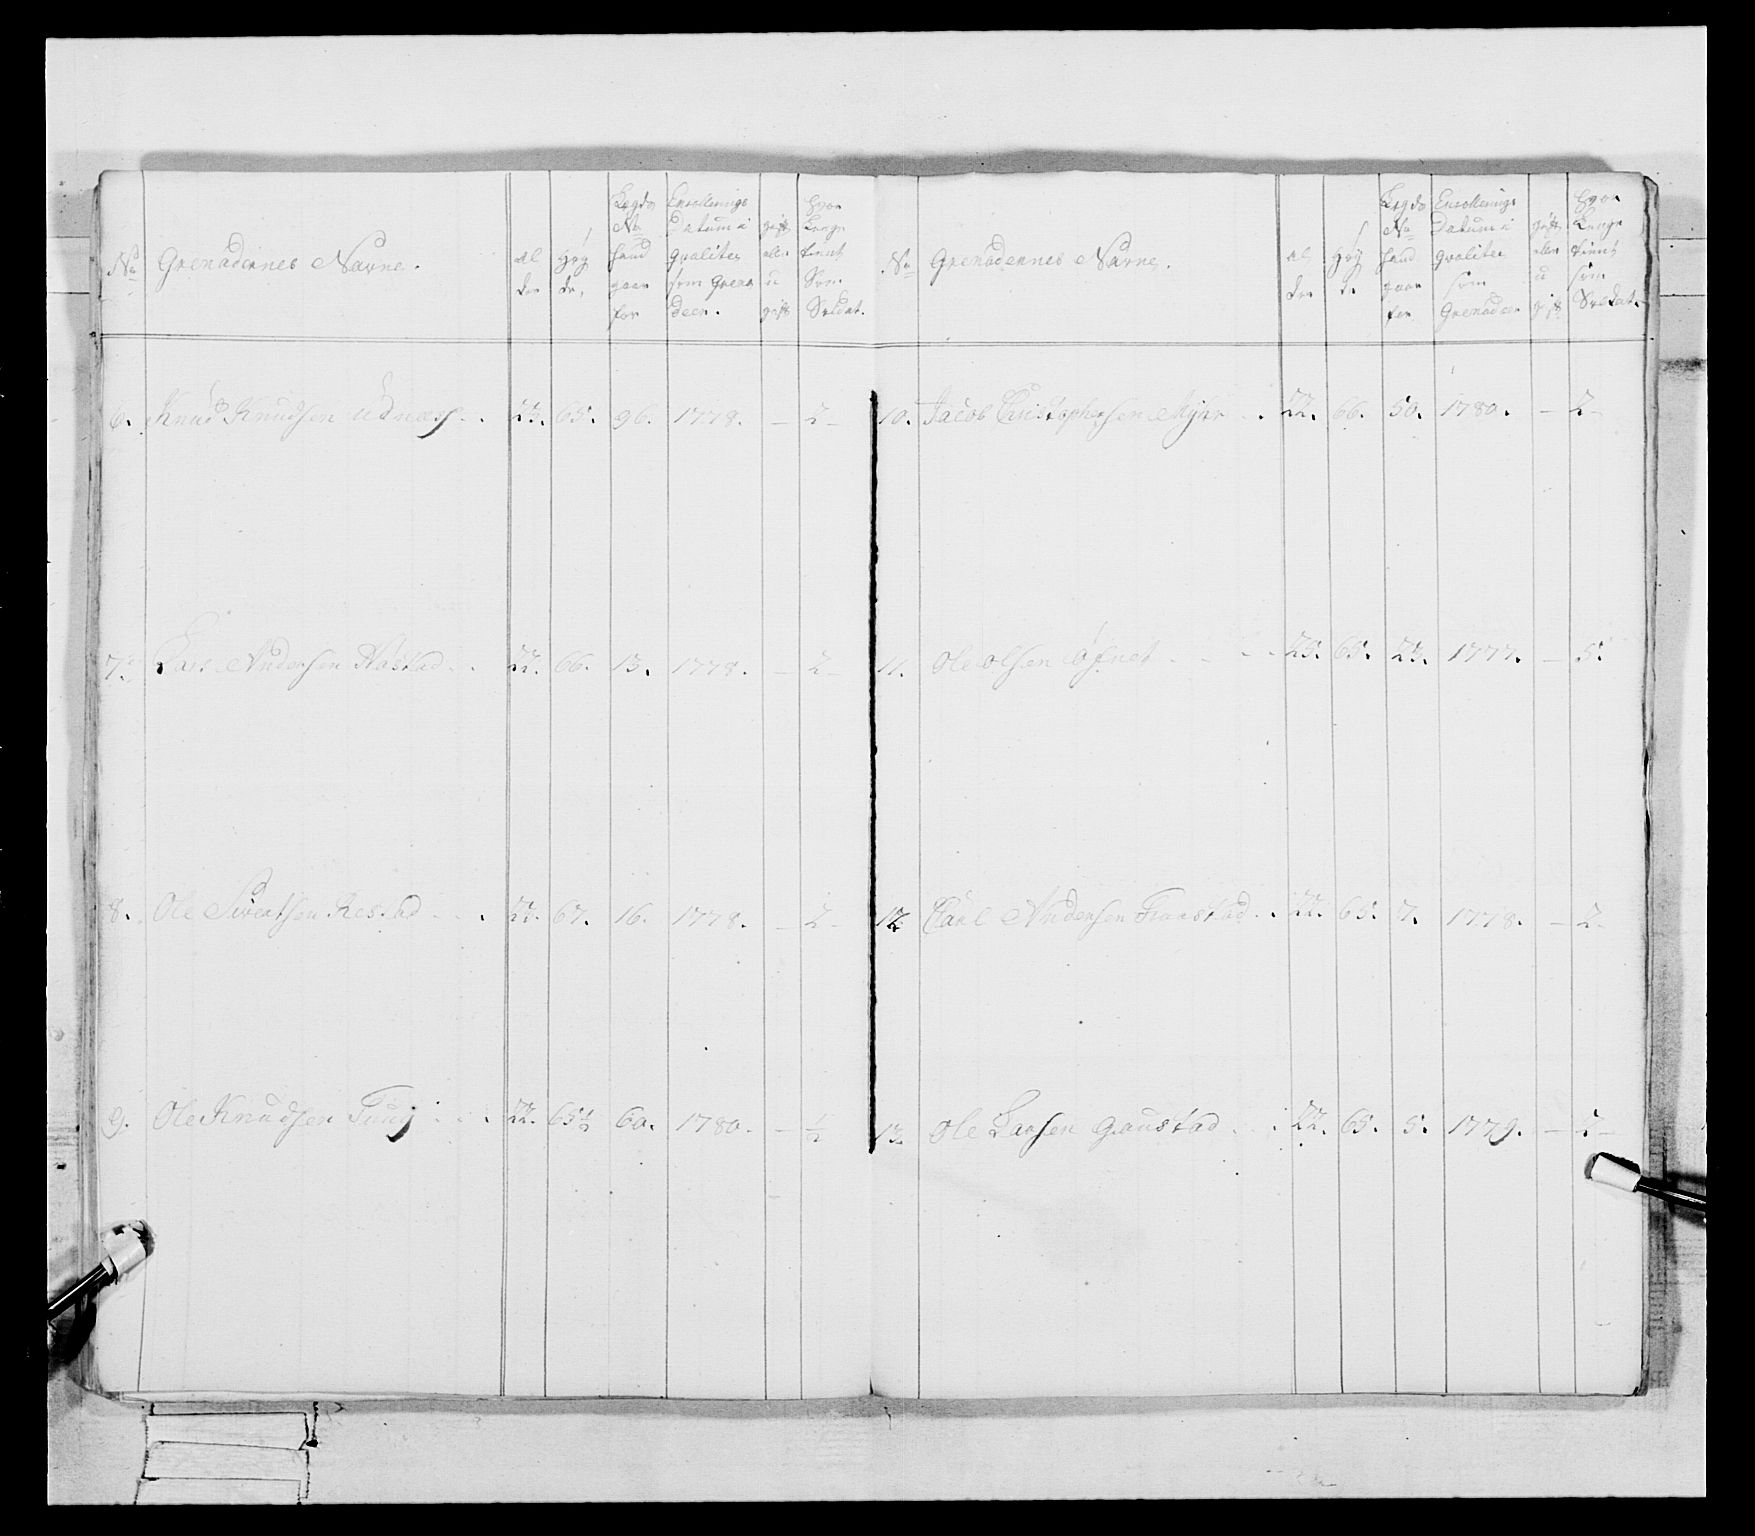 No Grenadernes Navne. al der Høy de, Legds No hand gaar for Enrollerings Datum i qvalitee som Grena deer. gift eller u gift hvor Lenge tient Som Soldat.
6. Knud Knudsen Udnæss . . 23. 65. 96. 1778. – 2 –
7. Lars Andersen Hastad . . 22. 66. 13. 1778. – 2 –
8. Ole Sivertsen Restad . . . 22. 67. 16. 1778. – 2 –
9. Ole Knudsen . . . 22. 65½ 60. 1780. – ½
No Grenadernes Navne. al der Høy de Legds No hand gaar for Enrollerings Datum i qvalitee som Grenadeer gift eller u gift hvor Lenge tient som Soldat.
10. Jacob Christophersen Myhr . . 22. 66. 50. 1780. – 2 –
11. Ole Olsen . . . . 25. 65. 23. 1777. – 5.
12 Carl Andersen Franstad . . 22. 65. 7. 1778. – 2 –
13. Ole Larsen Gaustad . . . 22. 65. 5. 1779. – 2 –